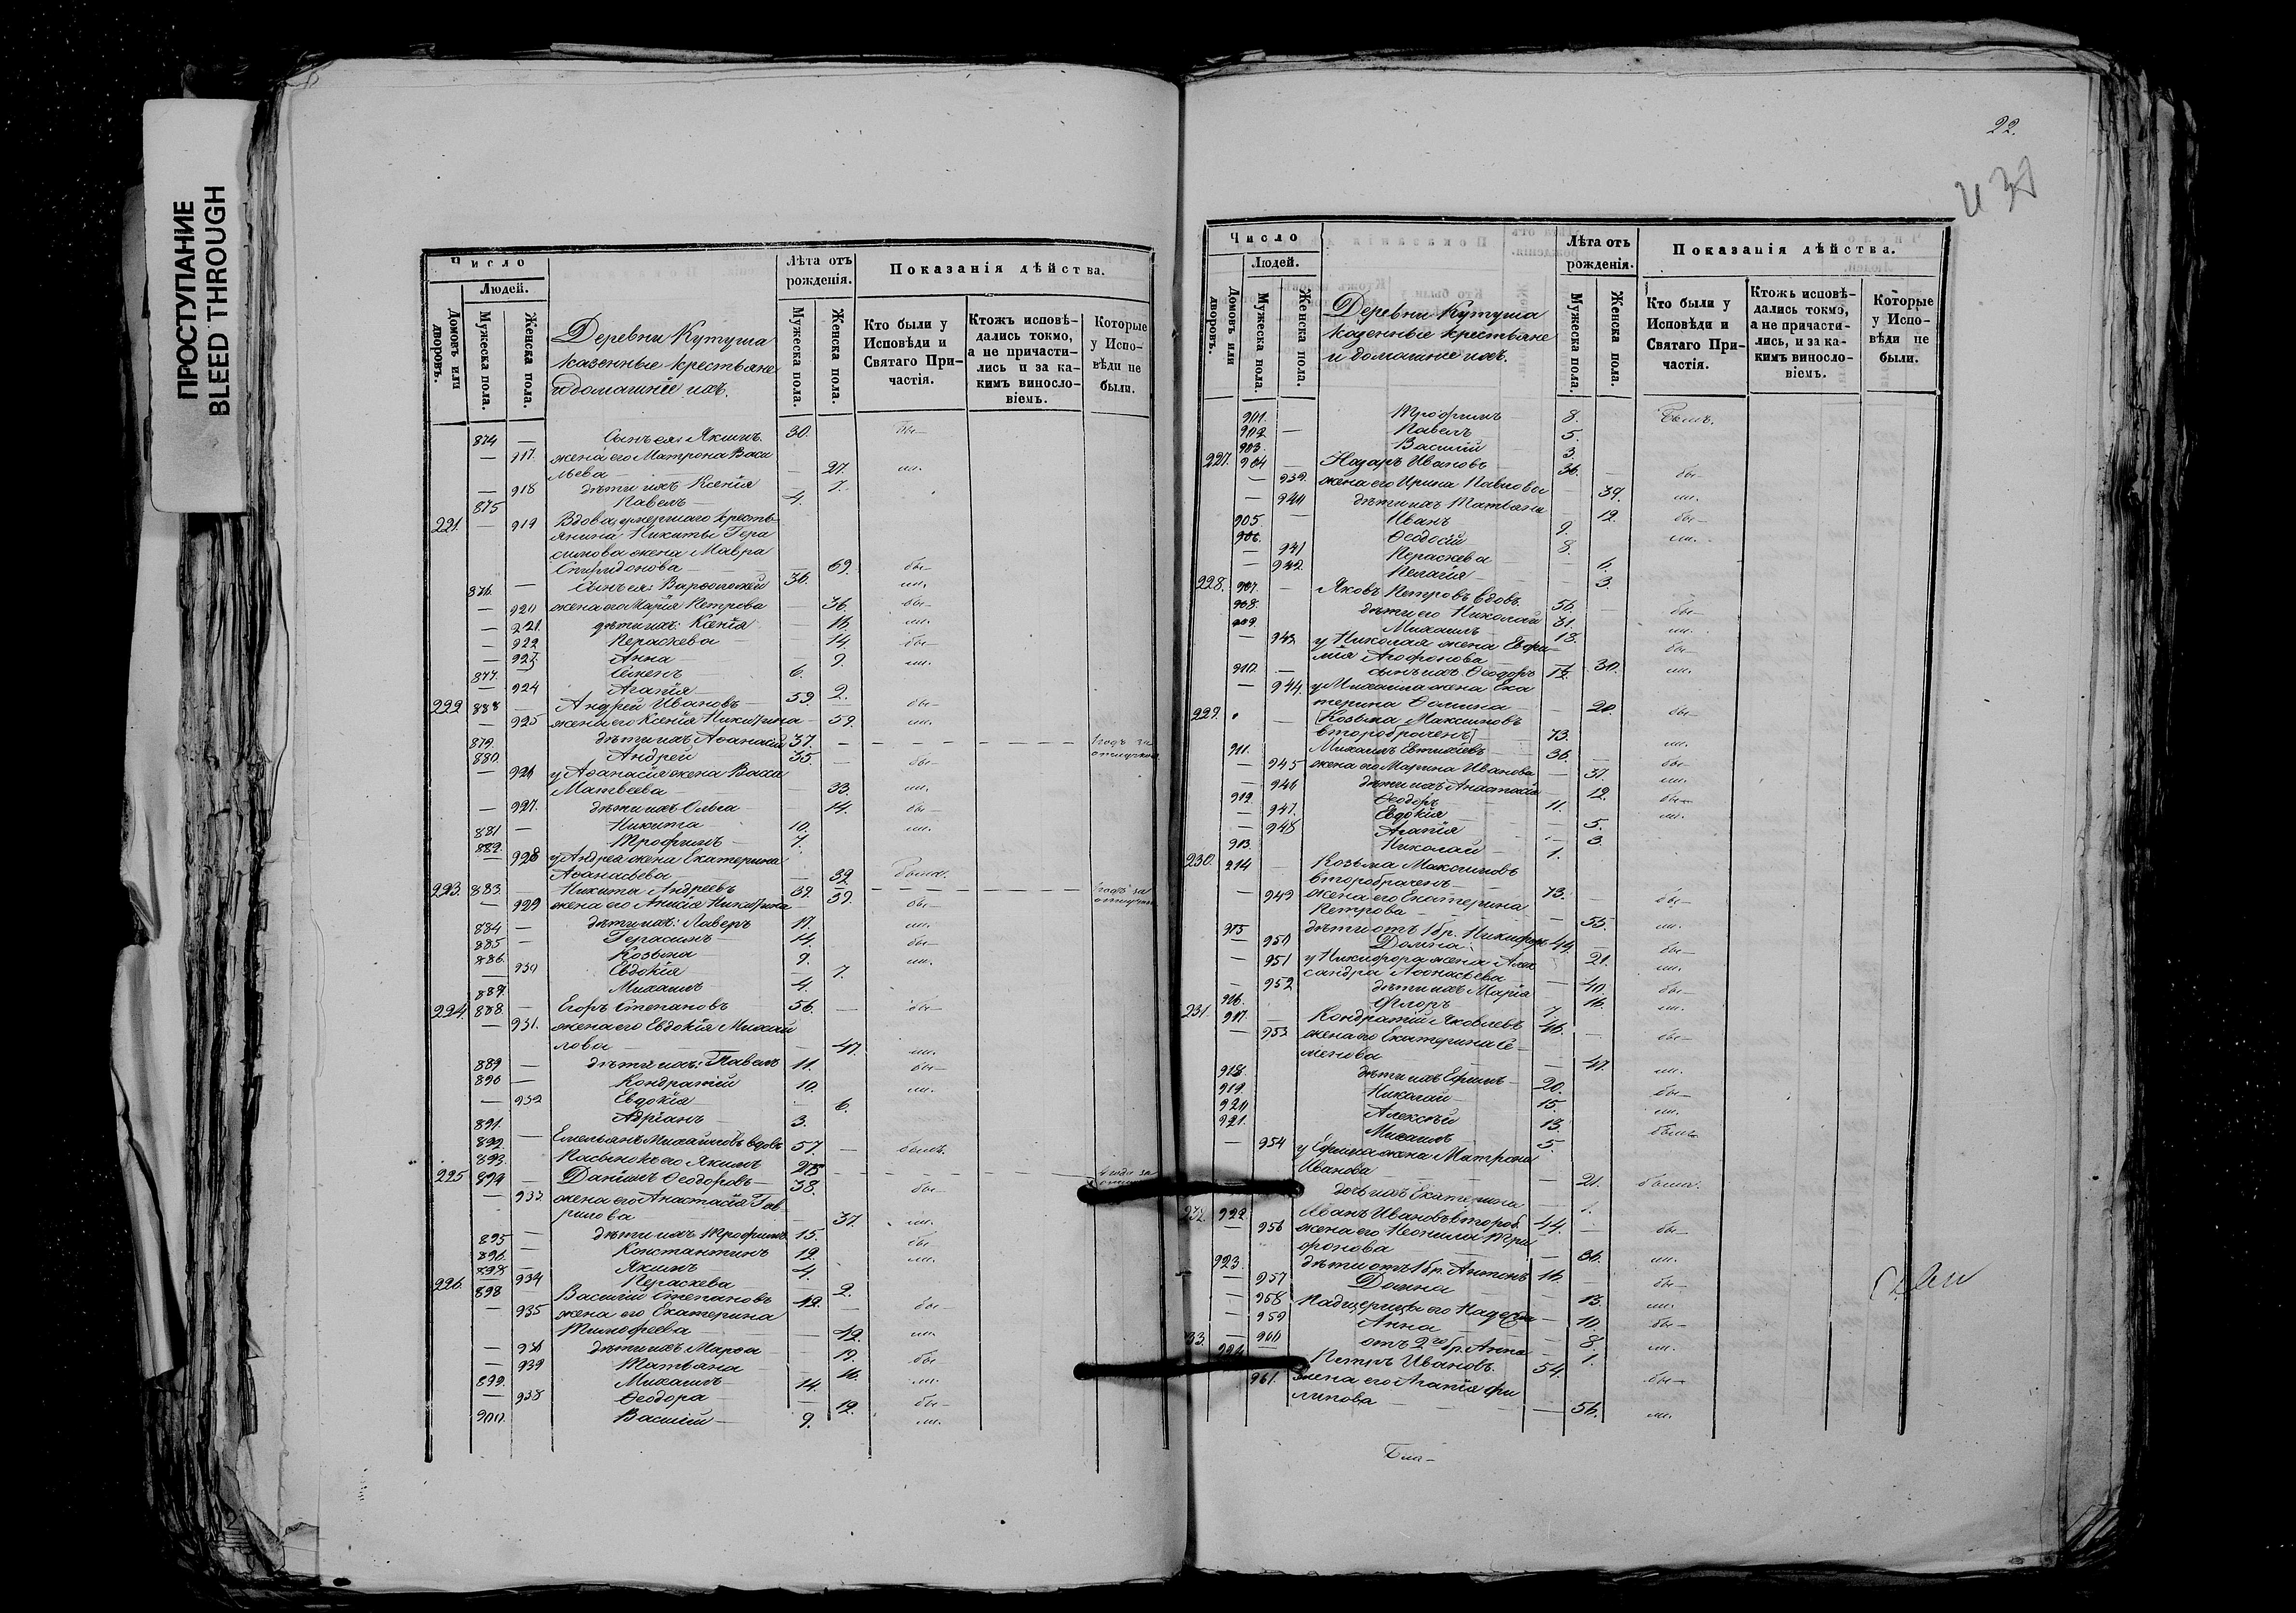 ПРОСТУПАНИЕ
BLEED THROUGH
Число
Людей.
Домовъ или дворовъ.
Мужеска пола.
Женска пола.
Деревни Кутуша
казенные крестьяне
и домашніе ихъ.
Лѣта отъ рожденія.
Мужеска пола.
Женска пола.
Показанія дѣйства.
Кто были у Исповѣди и Святаго Причастія.
Ктожъ исповѣдались токмо, а не причастились и за какимъ винословіемъ.
Которые у Исповѣди не были.
874 — Сынъ ея: Якимъ 30. бы—
— 917. жена его Матрона Васи
льева — 27. ли.
— 918 дѣти ихъ Ксенія — 7.
875 Павелъ — 4.
221. — 919 Вдова умершаго кресть
янина Никиты Гера
симова жена Мавра
Спиридонова — 69. бы—
876. — Сынъ ея: Варфоломей 36. ли.
— 920 жена его Марія Петрова — 36. бы—
— 921. дѣти ихъ: Ксенія — 16. ли.
— 922 Параскева — 14. бы—
— 923 Анна — 9. ли.
877. Семенъ 6.
— 924 Агапія — 2.
222 878 Андрей Ивановъ — 59. — бы—
— 925 жена его Ксенія Никитина — 59. ли.
879. дѣти ихъ Аѳанасій 37. — 1 годъ за
отлучкою
880. Андрей 35. — бы—
— 926 у Аѳанасія жена Васса
Матвеева — 33. ли.
— 927. дѣти ихъ Ольга — 14. бы—
881 — Никита 10. ли.
882. Трофимъ 7.
— 928 у Андрея жена Екатерина
Аѳанасьева — 32 была.
223. 883 — Никита Андреевъ 39. —
— 929 жена его Анисія Никитина — 39. бы—
884 — дѣти ихъ: Лаверъ 17. ли.
885 — Герасимъ 14. бы—
886. Козьма 9. ли.
— 930 Евдокія — 7.
887. Михаилъ 4.
224. 888. — Егоръ Степановъ 56. — бы—
— 931. жена его Евдокія Михай
лова — 47. ли.
889 — дѣти ихъ: Павелъ 11. бы—
890 — Кондратій 10. ли.
— 932 Евдокія — 6.
891. Адріанъ 3.
892 — Емельянъ Михайловъ вдовъ 57. — былъ.
893. Пасынокъ его Якимъ
225 894 — Даніилъ Ѳеодоровъ — 38. бы—
— 933. жена его Анастасія Гав
рилова — 37. ли.
895 — дѣти ихъ Трофимъ 15. бы
896. — Константинъ 12. ли.
897 — Якимъ 4.
— 934 Параскева — 2.
226. 898 Василій Степановъ 42. — бы—
— 935 жена его Екатерина
Тимофеева — 42. ли.
— 936 дѣти ихъ Марѳа — 19. бы
— 937 Татьяна — 16. ли.
899. Михаилъ 14. бы—
— 938 Ѳеодора — 12. ли.
900. Василій 9.
22.
Число
Людей.
Домовъ или дворовъ.
Мужеска пола.
Женска пола.
Деревни Кутуша
казенные крестьяне
и домашніе ихъ.
Лѣта отъ рожденія.
Мужеска пола.
Женска пола.
Показанія дѣйства.
Кто были у Исповѣди и Святаго Причастія.
Ктожъ исповѣдались токмо, а не причастились, и за какимъ винословіемъ.
Которые у Исповѣди не были.
901. Трофимъ 8. былъ.
902 — Павелъ 5.
903. Василій 3.
227. 904 — Назаръ Ивановъ 36. — бы—
— 939. жена его Ирина Павлова — 39. ли.
— 940 дѣти ихъ Татьяна — 12. бы—
905. — Иванъ 9. ли.
906. Ѳеодосій 8.
— 941 Параскева — 6.
— 942. Пелагія — 3.
228. 907. — Яковъ Петровъ вдовъ. 56. — бы—
908. дѣти его Николай 31. ли.
909. Михаилъ 18. бы—
— 943 у Николая жена Евфи
мія Агафонова — 30. ли.
910. — сынъ ихъ Ѳеодоръ
— 944. у Михаила жена Ека
терина Ѳомина — 20. бы—
229. — [Козьма Максимовъ
второбраченъ] 73.
911. Михаилъ Евтихіевъ 36. — ли.
— 945 жена его Марина Иванова — 37. бы—
— 946 дѣти ихъ Анастасія — 12. ли.
912 Ѳеодоръ 11. бы—
— 947. Евдокія — 5. ли.
— 948 Агапія — 3.
913. Николай 1.
230. 914 — Козьма Максимовъ
второбраченъ — 73. — бы—
— 949 жена его Екатерина
Петрова — 55. ли.
915 дѣти отъ 1 бр. Никифоръ 44. — бы—
— 950 Домна — 21. ли.
— 951 у Никифора жена Алек
сандра Аѳонасьева — 40. бы—
— 952 дѣти ихъ Марія — 16. ли.
916. Флоръ 7.
231. 917. — Кондратій Яковлевъ 46. — бы—
— 953 жена его Екатерина Се
менова — 47. ли.
918. дѣти ихъ Ефимъ 20. бы—
919. Николай 15. ли.
920 Алексѣй 13. были
921. Михаилъ 5.
— 954 у Ефима жена Матрона
Иванова — 21. была.
дочь ихъ Екатерина — 1.
232. 922. Иванъ Ивановъ второб. 44. — бы—
— 956 жена его Неонила Три
фонова — 36. ли.
923. дѣти отъ 1 бр. Антонъ 16. — бы—
— 957 Домна — 13. ли.
— 958 Падщерицы его Надежда — 10. бы—
— 959 Анна — 8. ли.
— 960 отъ 2го бр. Анна — 1.
33. 924 Петръ Ивановъ. 54. бы—
961. жена его Агапія Фи
липова — 56. ли.
Бла—